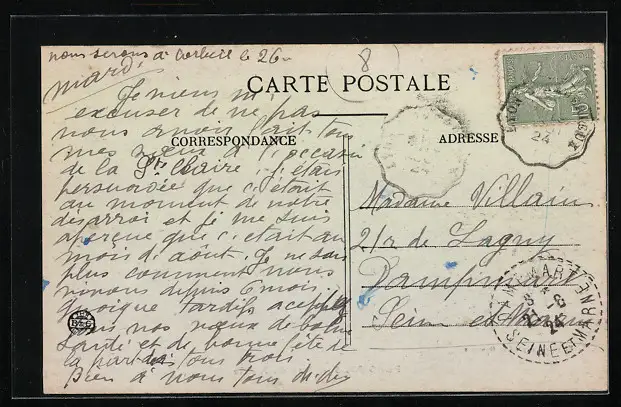 nous serons à Corbeil le 26
mardi
8
CARTE POSTALE
CORRESPONDANCE
ADRESSE
Je viens m'
excuser de ne pas
vous avoir fait tous
mes vœux à l'occasion
de la Ste Claire, j'étais
persuadée que c'était
au moment de notre
désarroi et je me suis
aperçue que c'était au
mois d'août. Je ne sais
plus comment nous
vivons depuis 6 mois.
quoique tardifs acceptez
tous nos vœux de bonne
santé et de bonne fête de
la part de tous trois
Bien à vous tous
Madame Villain
2 r de Lagny
Dampmart
Seine et Marne
LYON
24
DAMPMART
8
27-8
24
SEINE ET MARNE